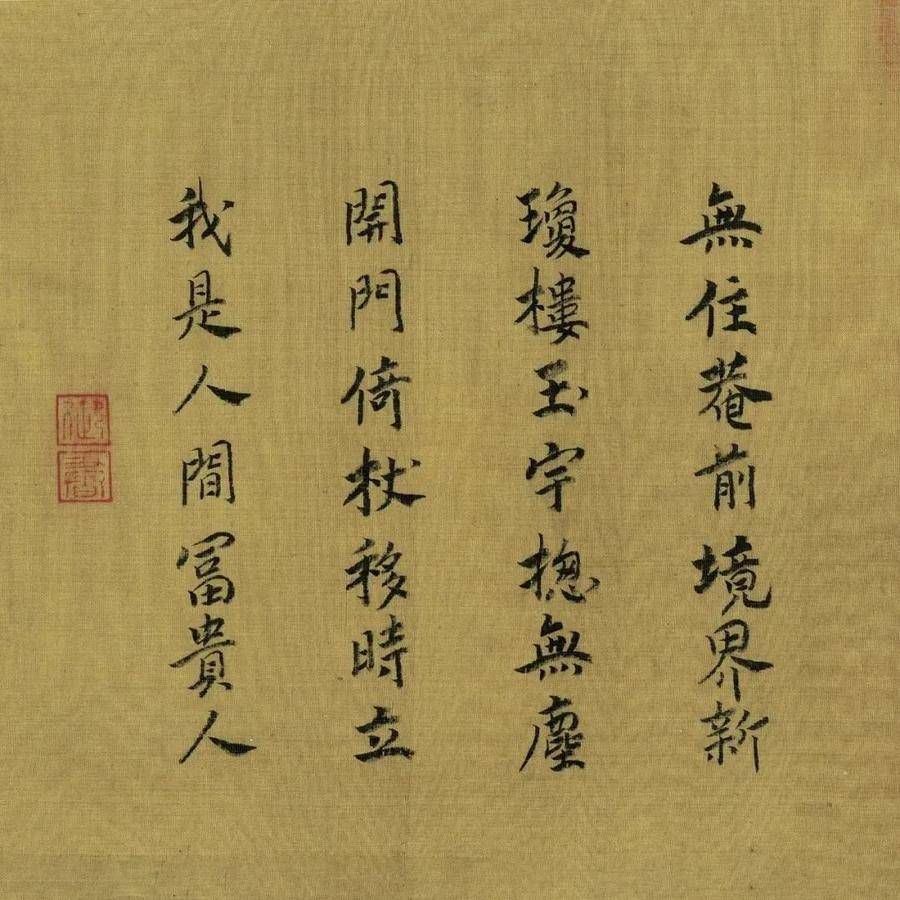 無住菴前境界新
瓊樓玉宇揔無塵
開門倚杖移時立
我是人間冨貴人